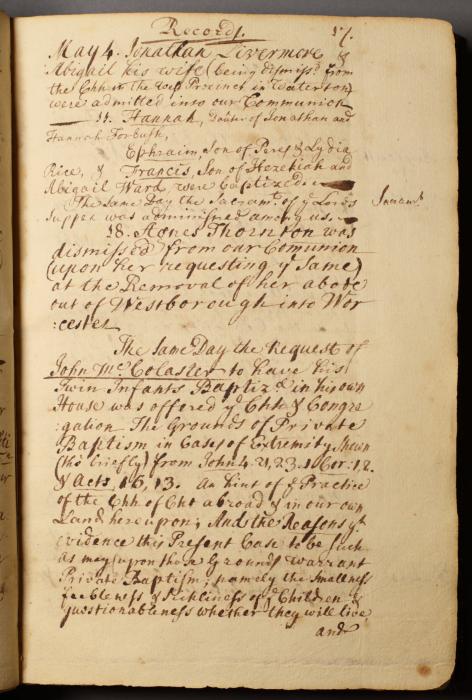 Records.
17.
May 4. Jonathan Livermore &
Abigail his wife (being dismiss'd from
the Chh in the West Precinct in Waterton)
were admitted into our Communion
11. Hannah, Dauter of Jonathan and
Hannah Forbush,
Ephraim, Son of Perez & Lydia
Rice, & Francis, Son of Hezekiah and
Abigail Ward, were baptized.
The same Day the Sacramt. of ye Lords
Supper was administred among us.
Sacramt.
18. Agnes Thornton was
dismissed from our Comunion
(upon her requesting ye Same)
at the Removal of her abode
out of Westborough into Wor
:cester
The same Day the Request of
John McColaster to have his
Twin Infants Baptiz'd in his own
House was offered ye Chh & Congre
:gation The Grounds of Private
Baptism in Cases of Extremity shewn
(tho briefly) from John 4. 21, 23. 1 Cor: 1, 2.
& Acts, 16, 13. An hint of ye Practice
of the Chh of Cht abroad & in our own
Land hereupon; And the Reasons yt
evidence this Present Case to be such
as may (upon those Grounds) warrant
Private Baptism; namely the smallness
feebleness & Sickliness of ye Children &
questionableness whether they will live
and